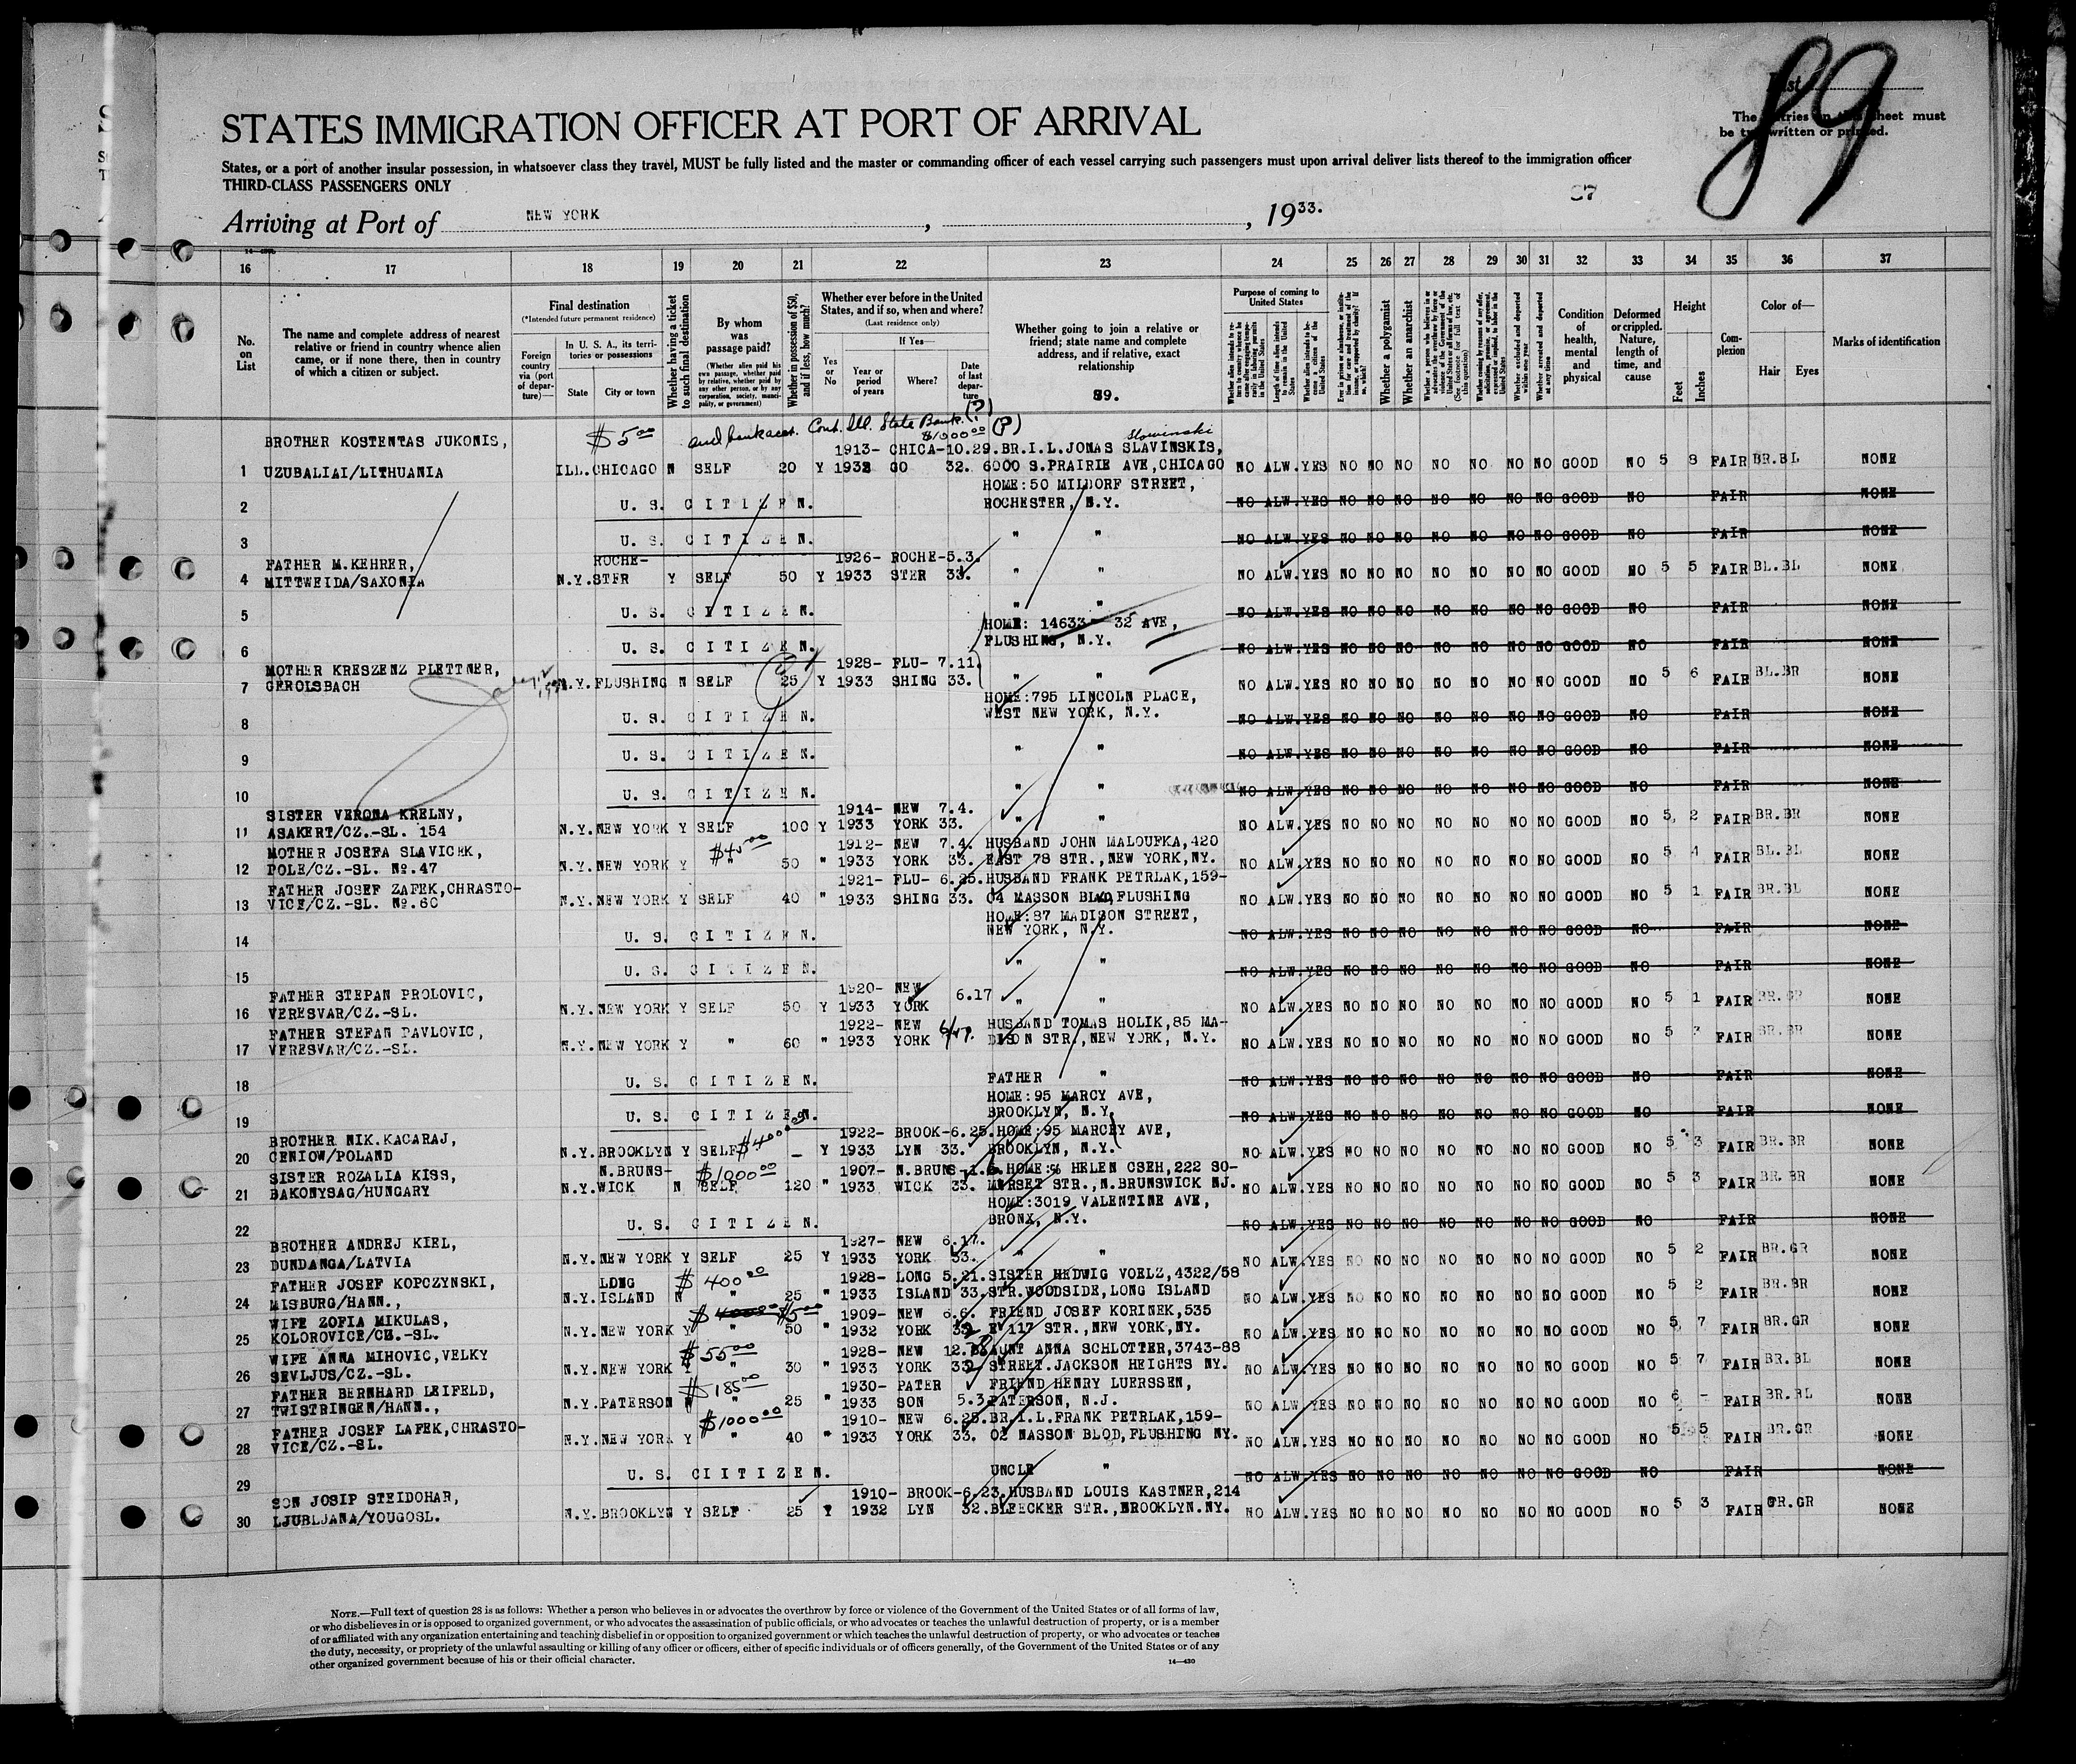 List
89
The entries on this sheet must
be typewritten or printed.
STATES IMMIGRATION OFFICER AT PORT OF ARRIVAL
States, or a port of another insular possession, in whatsoever class they travel, MUST be fully listed and the master or commanding officer of each vessel carrying such passengers must upon arrival deliver lists thereof to the immigration officer
THIRD-CLASS PASSENGERS ONLY
Arriving at Port of NEW YORK, , 1933.
16 17 18 19 20 21 22 23 24 25 26 27 28 29 30 31 32 33 34 35 36 37
No. on List
The name and complete address of nearest relative or friend in country whence alien came, or if none there, then in country of which a citizen or subject.
Final destination
(*Intended future permanent residence)
Foreign country via (port of departure)—
In U. S. A., its territories or possessions
State City or town
Whether having a ticket to such final destination
By whom was passage paid?
(Whether alien paid his own passage, whether paid by relative, whether paid by any other person, or by any corporation, society, municipality, or government)
Whether in possession of $50, and if less, how much?
Whether ever before in the United States, and if so, when and where?
(Last residence only)
Yes or No
If Yes—
Year or period of years Where? Date of last departure
Whether going to join a relative or friend; state name and complete address, and if relative, exact relationship
89.
Purpose of coming to United States
Length of time alien intends to remain in the United States
Whether alien intends to become a citizen of the United States
Whether a polygamist
Whether an anarchist
Condition of health, mental and physical
Deformed or crippled. Nature, length of time, and cause
Height
Feet Inches
Complexion
Color of—
Hair Eyes
Marks of identification
$5.00 and bank acct. Cont. Ill. State Bank (?)
$1000.00 (?) Slowinski
1 BROTHER KOSTENTAS JUKONIS, UZUBALIAI/LITHUANIA ILL. CHICAGO N SELF 20 Y 1913-1932 CHICAGO 10.29.32. BR.I.L.JONAS SLAVINSKIS, 6000 S.PRAIRIE AVE,CHICAGO NO ALW.YES NO NO NO NO NO NO NO GOOD NO 5 8 FAIR BR.BL NONE
2 U. S. CITIZEN. HOME:50 MILDORF STREET, ROCHESTER, N.Y. NO ALW.YES NO NO NO NO NO NO NO GOOD NO FAIR NONE
3 U. S. CITIZEN. " " NO ALW.YES NO NO NO NO NO NO NO GOOD NO FAIR NONE
4 FATHER M.KEHRER, MITTWEIDA/SAXONIA N.Y. ROCHE-STER Y SELF 50 Y 1926-1933 ROCHE-STER 5.3.33. " " NO ALW.YES NO NO NO NO NO NO NO GOOD NO 5 5 FAIR BL.BL NONE
5 U. S. CITIZEN. " " NO ALW.YES NO NO NO NO NO NO NO GOOD NO FAIR NONE
6 U. S. CITIZEN. HOME: 14633 - 32 AVE, FLUSHING, N.Y. NO ALW.YES NO NO NO NO NO NO NO GOOD NO FAIR NONE
7 MOTHER KRESZENZ PLETTNER, GEROLSBACH N.Y. FLUSHING N SELF 25 Y 1928-1933 FLU-SHING 7.11.33. " " NO ALW.YES NO NO NO NO NO NO NO GOOD NO 5 6 FAIR BL.BR NONE
8 U. S. CITIZEN. HOME:795 LINCOLN PLACE, WEST NEW YORK, N.Y. NO ALW.YES NO NO NO NO NO NO NO GOOD NO FAIR NONE
9 U. S. CITIZEN. " " NO ALW.YES NO NO NO NO NO NO NO GOOD NO FAIR NONE
10 U. S. CITIZEN. " " NO ALW.YES NO NO NO NO NO NO NO GOOD NO FAIR NONE
11 SISTER VERONA KRELNY, ASAKERT/CZ.-SL. 154 N.Y. NEW YORK Y SELF 100 Y 1914-1933 NEW YORK 7.4.33. " " NO ALW.YES NO NO NO NO NO NO NO GOOD NO 5 2 FAIR BR.BR NONE
12 MOTHER JOSEFA SLAVICEK, POLE/CZ.-SL. No.47 N.Y. NEW YORK Y $45.00 " 50 " 1912-1933 NEW YORK 7.4.33. HUSBAND JOHN MALOUFKA,420 EAST 78 STR.,NEW YORK,NY. NO ALW.YES NO NO NO NO NO NO NO GOOD NO 5 4 FAIR BL.BL NONE
13 FATHER JOSEF ZAFEK,CHRASTO-VICE/CZ.-SL. No.60 N.Y. NEW YORK Y SELF 40 " 1921-1933 FLU-SHING 6.25.33. HUSBAND FRANK PETRLAK,159-04 MASSON BLVD,FLUSHING NO ALW.YES NO NO NO NO NO NO NO GOOD NO 5 1 FAIR BR.BL NONE
14 U. S. CITIZEN. HOME:87 MADISON STREET, NEW YORK, N.Y. NO ALW.YES NO NO NO NO NO NO NO GOOD NO FAIR NONE
15 U. S. CITIZEN. " " NO ALW.YES NO NO NO NO NO NO NO GOOD NO FAIR NONE
16 FATHER STEPAN PROLOVIC, VERESVAR/CZ.-SL. N.Y. NEW YORK Y SELF 50 Y 1920-1933 NEW YORK 6.17 " " NO ALW.YES NO NO NO NO NO NO NO GOOD NO 5 1 FAIR BR.GR NONE
17 FATHER STEFAN PAVLOVIC, VERESVAR/CZ.-SL. N.Y. NEW YORK Y " 60 " 1922-1933 NEW YORK 6/17. HUSBAND TOMAS HOLIK,85 MA-DISON STR.,NEW YORK, N.Y. NO ALW.YES NO NO NO NO NO NO NO GOOD NO 5 3 FAIR BR.BR NONE
18 U. S. CITIZEN. FATHER " NO ALW.YES NO NO NO NO NO NO NO GOOD NO FAIR NONE
19 U. S. CITIZEN. HOME:95 MARCY AVE, BROOKLYN, N.Y. NO ALW.YES NO NO NO NO NO NO NO GOOD NO FAIR NONE
20 BROTHER NIK.KACARAJ, CENIOW/POLAND N.Y. BROOKLYN Y SELF $400.00 - Y 1922-1933 BROOK-LYN 6.25.33. HOME:95 MARCEY AVE, BROOKLYN, N.Y. NO ALW.YES NO NO NO NO NO NO NO GOOD NO 5 3 FAIR BR.BR NONE
21 SISTER ROZALIA KISS, BAKONYSAG/HUNGARY N.Y. N.BRUNS-WICK N $1000.00 SELF 120 " 1907-1933 N.BRUNS-WICK 33. HOME:% HELEN CSEH,222 SO-MERSET STR.,N.BRUNSWICK NJ. NO ALW.YES NO NO NO NO NO NO NO GOOD NO 5 3 FAIR BR.BR NONE
22 U. S. CITIZEN. HOME:3019 VALENTINE AVE, BRONX, N.Y. NO ALW.YES NO NO NO NO NO NO NO GOOD NO FAIR NONE
23 BROTHER ANDREJ KIEL, DUNDANGA/LATVIA N.Y. NEW YORK Y SELF 25 Y 1927-1933 NEW YORK 6.17.33. " " NO ALW.YES NO NO NO NO NO NO NO GOOD NO 5 2 FAIR BR.GR NONE
24 FATHER JOSEF KOPCZYNSKI, MISBURG/HANN., N.Y. LONG ISLAND N $400.00 " 25 " 1928-1933 LONG ISLAND 5.21.33. SISTER HEDWIG VOELZ,4322/58 STR.WOODSIDE,LONG ISLAND NO ALW.YES NO NO NO NO NO NO NO GOOD NO 5 2 FAIR BR.BR NONE
25 WIFE ZOFIA MIKULAS, KOLOROVICE/CZ.-SL. N.Y. NEW YORK Y $5.00 " 50 " 1909-1932 NEW YORK 6.6. FRIEND JOSEF KORINEK,535 E 117 STR.,NEW YORK,NY. NO ALW.YES NO NO NO NO NO NO NO GOOD NO 5 7 FAIR BR.GR NONE
26 WIFE ANNA MIHOVIC,VELKY SEVLJUS/CZ.-SL. N.Y. NEW YORK Y $55.00 " 30 " 1928-1933 NEW YORK AUNT ANNA SCHLOTTER,3743-88 STREET.JACKSON HEIGHTS NY. NO ALW.YES NO NO NO NO NO NO NO GOOD NO 5 7 FAIR BR.BL NONE
27 FATHER BERNHARD LEIFELD, TWISTRINGEN/HANN., N.Y. PATERSON N $185.00 " 25 " 1930-1933 PATER SON 5.3. FRIEND HENRY LUERSSEN, PATERSON, N.J. NO ALW.YES NO NO NO NO NO NO NO GOOD NO 6 - FAIR BR.BL NONE
28 FATHER JOSEF LAFEK,CHRASTO-VICE/CZ.-SL. N.Y. NEW YORK Y $1000.00 " 40 " 1910-1933 NEW YORK 6.25.33. BR.I.L.FRANK PETRLAK,159-02 NASSON BLOD,FLUSHING NY. NO ALW.YES NO NO NO NO NO NO NO GOOD NO 5 5 FAIR BR.GR NONE
29 U. S. CIITIZEN. UNCLE " NO ALW.YES NO NO NO NO NO NO NO GOOD NO FAIR NONE
30 SON JOSIP STEIDOHAR, LJUBLJANA/YOUGOSL. N.Y. BROOKLYN Y SELF 25 Y 1910-1932 BROOK-LYN 6.23.32. HUSBAND LOUIS KASTNER,214 BLEECKER STR.,BROOKLYN.NY. NO ALW.YES NO NO NO NO NO NO NO GOOD NO 5 3 FAIR GR.GR NONE
NOTE.—Full text of question 28 is as follows: Whether a person who believes in or advocates the overthrow by force or violence of the Government of the United States or of all forms of law,
or who disbelieves in or is opposed to organized government, or who advocates the assassination of public officials, or who advocates or teaches the unlawful destruction of property, or is a member
of or affiliated with any organization entertaining and teaching disbelief in or opposition to organized government or which teaches the unlawful destruction of property, or who advocates or teaches
the duty, necessity, or propriety of the unlawful assaulting or killing of any officer or officers, either of specific individuals or of officers generally, of the Government of the United States or of any
other organized government because of his or their official character.
14—430